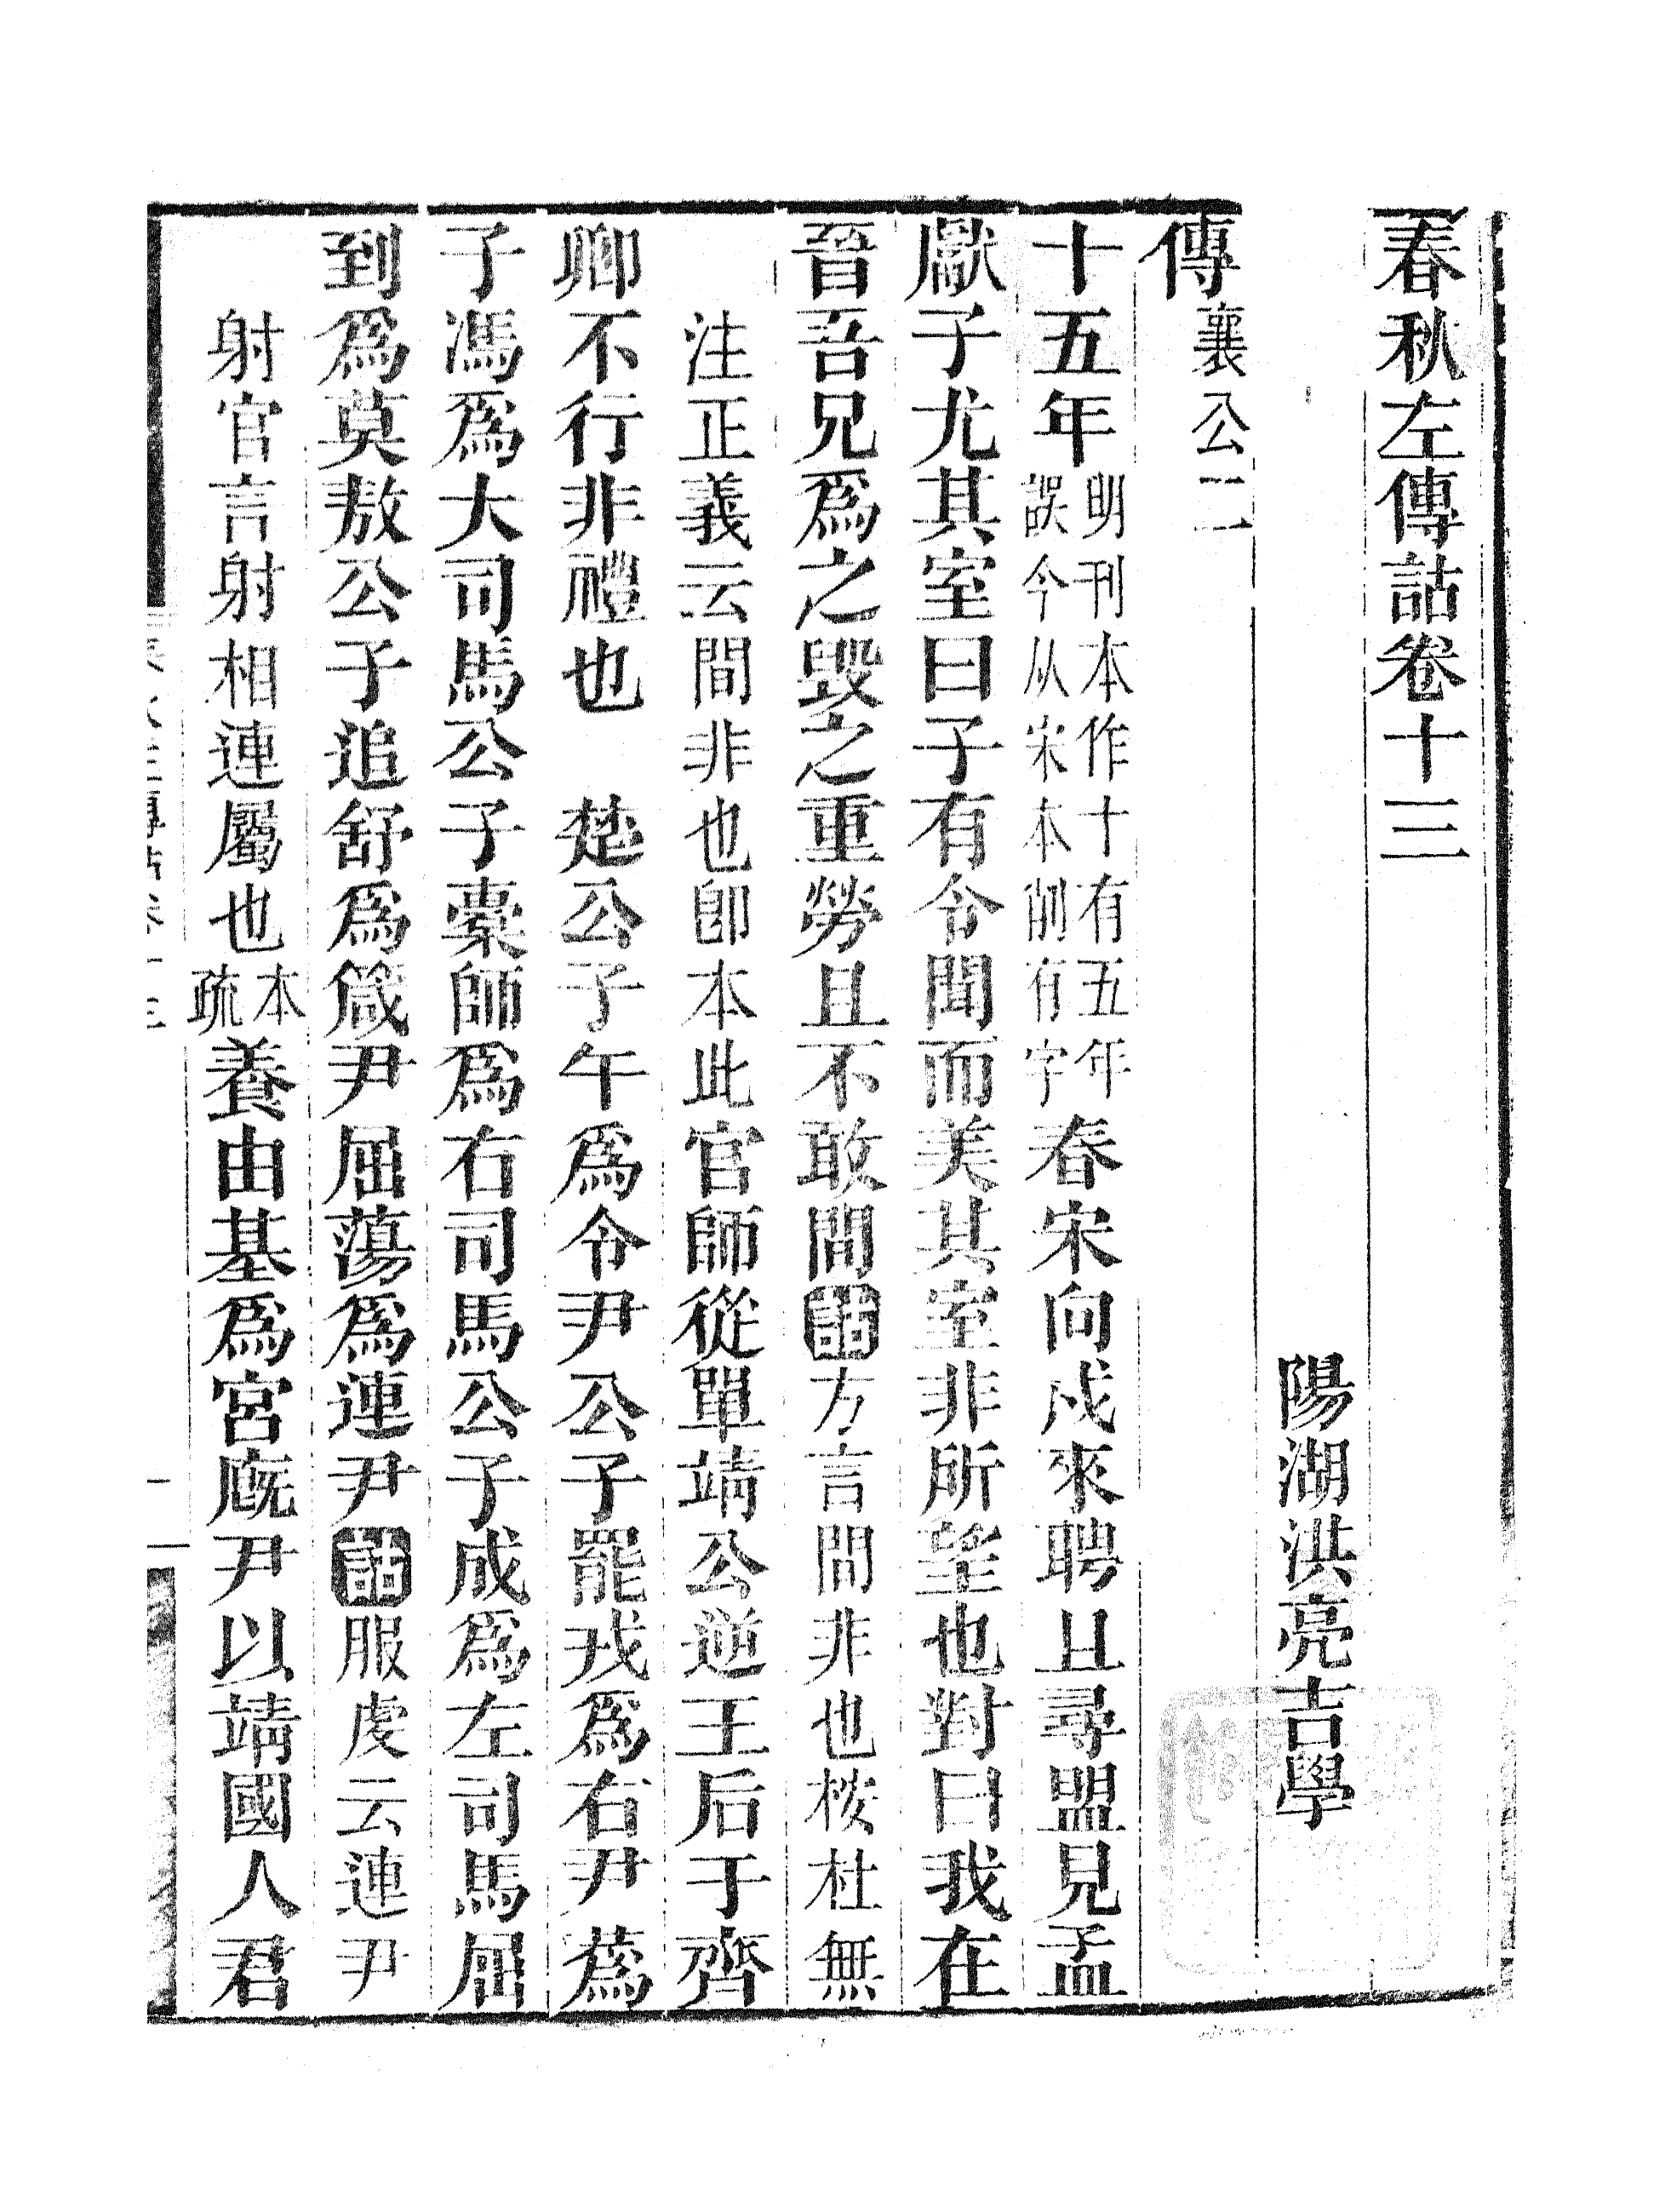 春秋左傳詁卷十三
陽湖洪亮吉學
傳襄公二
十五年明刊本作十有五年誤今从宋本削有字春宋向戌來聘且尋盟見孟
獻子尤其室曰子有令聞而美其室非所望也對曰我在
晉吾兄爲之毀之重勞且不敢閒詁方言閒非也桉杜無
注正義云間非也卽本此官師從單靖公逆王后于齊
卿不行非禮也　楚公子午爲令尹公子罷戎爲右尹蒍
子馮爲大司馬公子橐師爲右司馬公子成爲左司馬屈
到爲莫敖公子追舒爲箴尹屈蕩爲連尹詁服虔云連尹
射官言射相連屬也本疏養由基爲宮廐尹以靖國人君